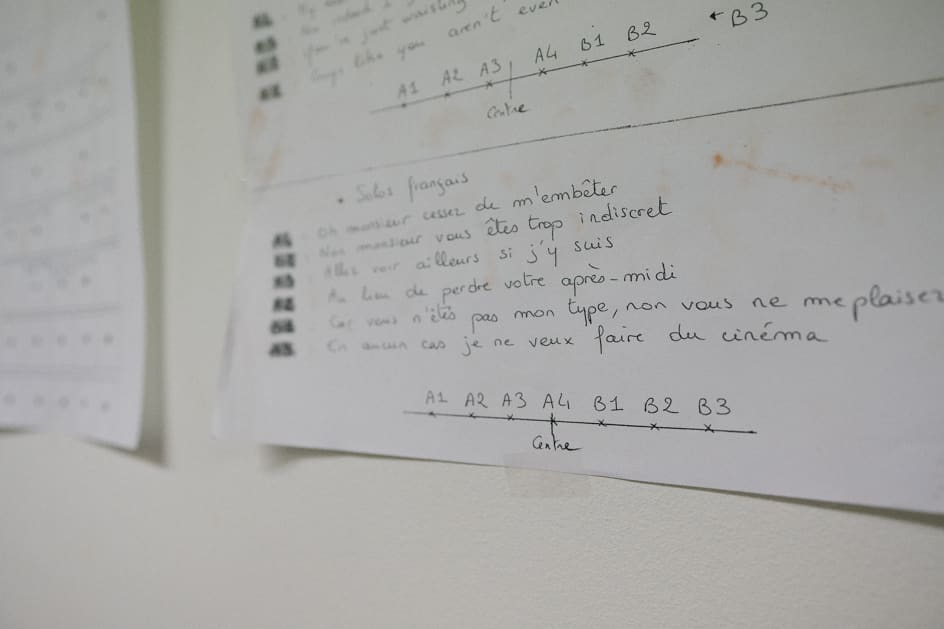 you're just wasting
Guys like you aren't even
← B3
A1 A2 A3 A4 B1 B2
Centre
• Solos français
Oh monsieur cessez de m'embêter
Non monsieur vous êtes trop indiscret
Allez voir ailleurs si j'y suis
Au lieu de perdre votre après-midi
Car vous n'êtes pas mon type, non vous ne me plaisez
En aucun cas je ne veux faire du cinéma
A1 A2 A3 A4 B1 B2 B3
Centre